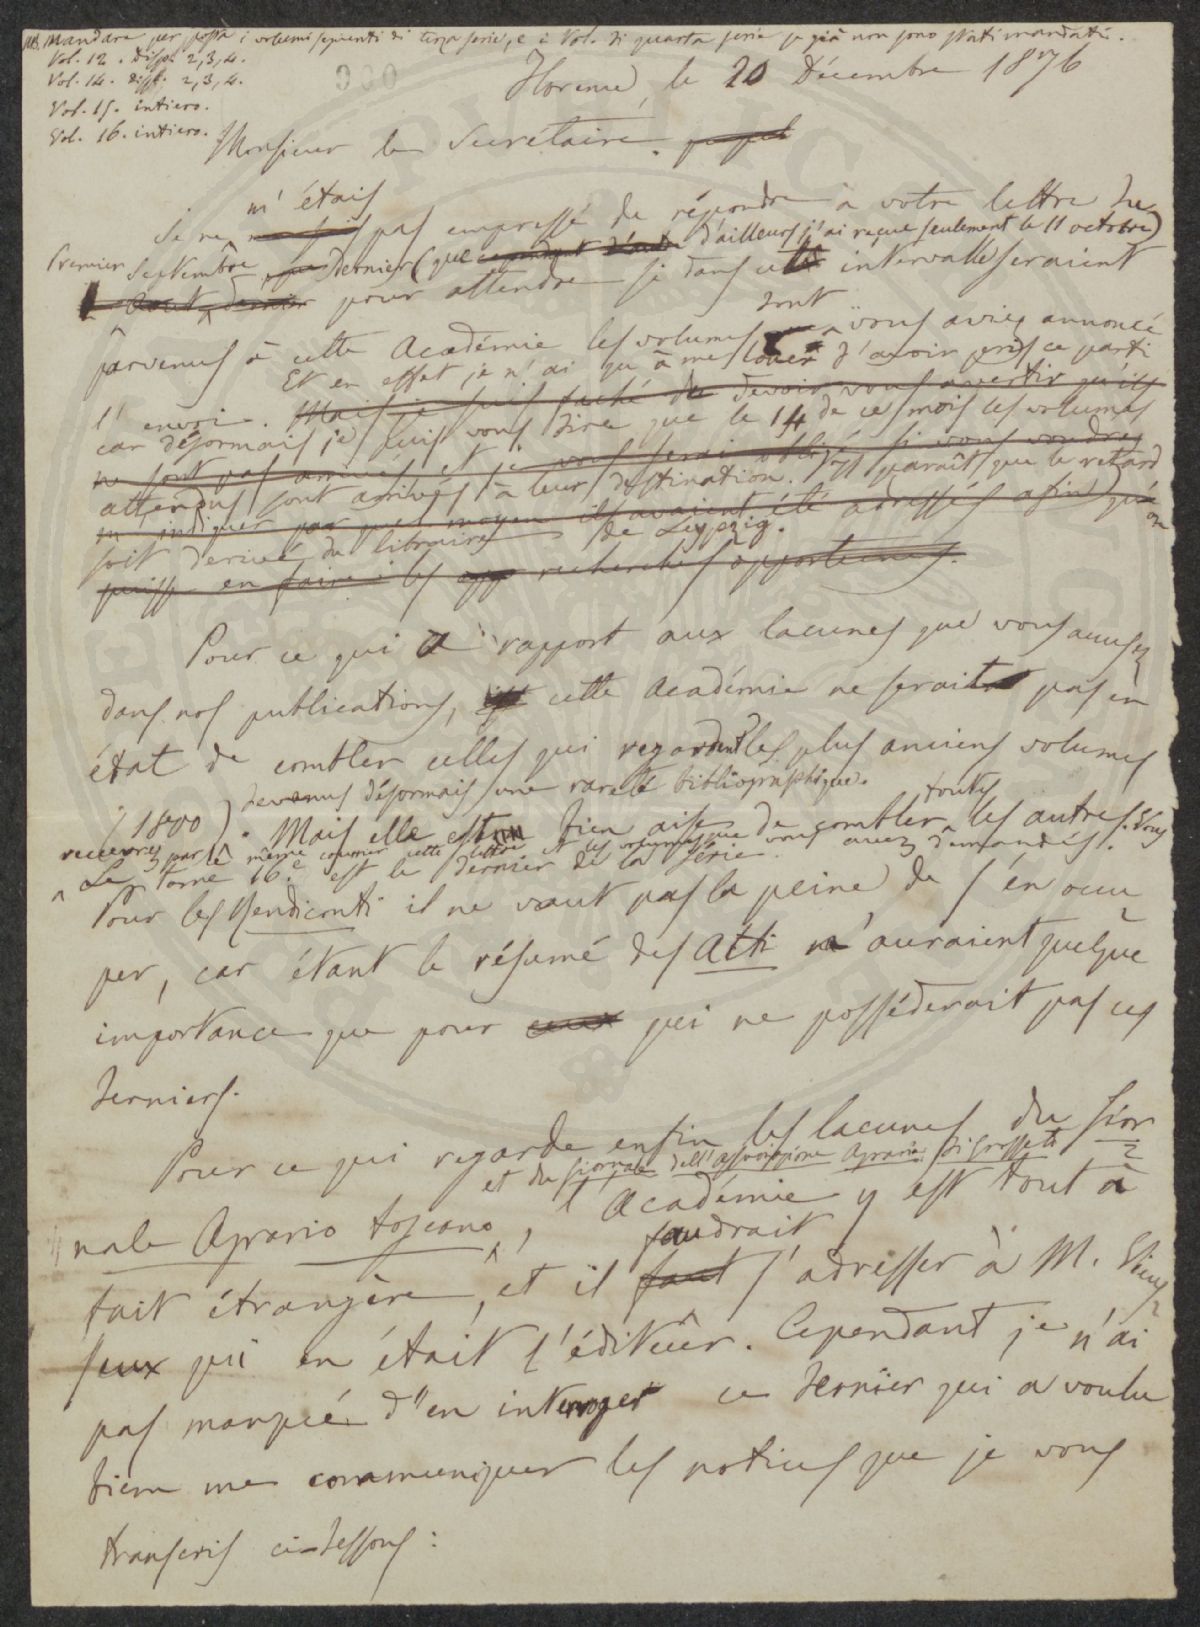 NB. Mandare per posta i volumi seguenti di terza serie, e i Vol. di quarta serie se già non sono stati mandati.
Vol. 12. Disp. 2, 3, 4.
Vol. 14. disp. 2, 3, 4.
Vol. 15. intiero.
Vol. 16. intiero.
000
Florence, le 20 Décembre 1876
Monsieur le Secrétaire.
m'étais
Je ne pas empressé de répondre à votre lettre de
Premier Septembre dernier (que d'ailleurs j'ai reçue seulement le 11 octobre)
pour attendre si dans cet intervalle seraient
parvenus à cette Académie les volumes dont vous aviez annoncé
l'envoi. Et en effet je n'ai qu'à me louer d'avoir pris ce parti
Mais je suis faché de devoir vous avertir qu'ils
car désormais je puis vous dire que le 14 de ce mois les volumes
ne sont pas arrivés et je vous serai obligé si vous voudrez
attendus sont arrivés à leur destination. Il paraît que le retard
m'indiquer par quel moyen ils avaient été adressés afin qu'on
soit derivé du libraire de Leipzig.
puisse en faire les recherches opportunes.
Pour ce qui a rapport aux lacunes que vous accusez
dans nos publications, cette Académie ne serait pas en
état de combler celles qui regardent les plus anciens volumes
devenus désormais une rareté bibliographique.
(1800). Mais elle est bien aise de combler toutes les autres. Vous
recevrez par le même courrier cette lettre et les volumes que vous avez demandés.
Le tome 16.e est le dernier de la Série.
Pour les Rendiconti il ne vaut pas la peine de s'en occu
per, car étant le résumé des Atti n'auraient quelque
importance que pour ceux qui ne posséderait pas ces
derniers.
Pour ce qui regarde enfin les lacunes du Gior
et du Giornale dell'associazione Agraria di Grosseto
nale Agrario toscano, l'Académie y est tout à
fait étrangère, et il faudrait faut s'adresser à M. Vieus
seux qui en était l'éditeur. Cependant je n'ai
pas manqué d'en interroger ce dernier qui a voulu
bien me communiquer les notices que je vous
transcris ci-dessous: